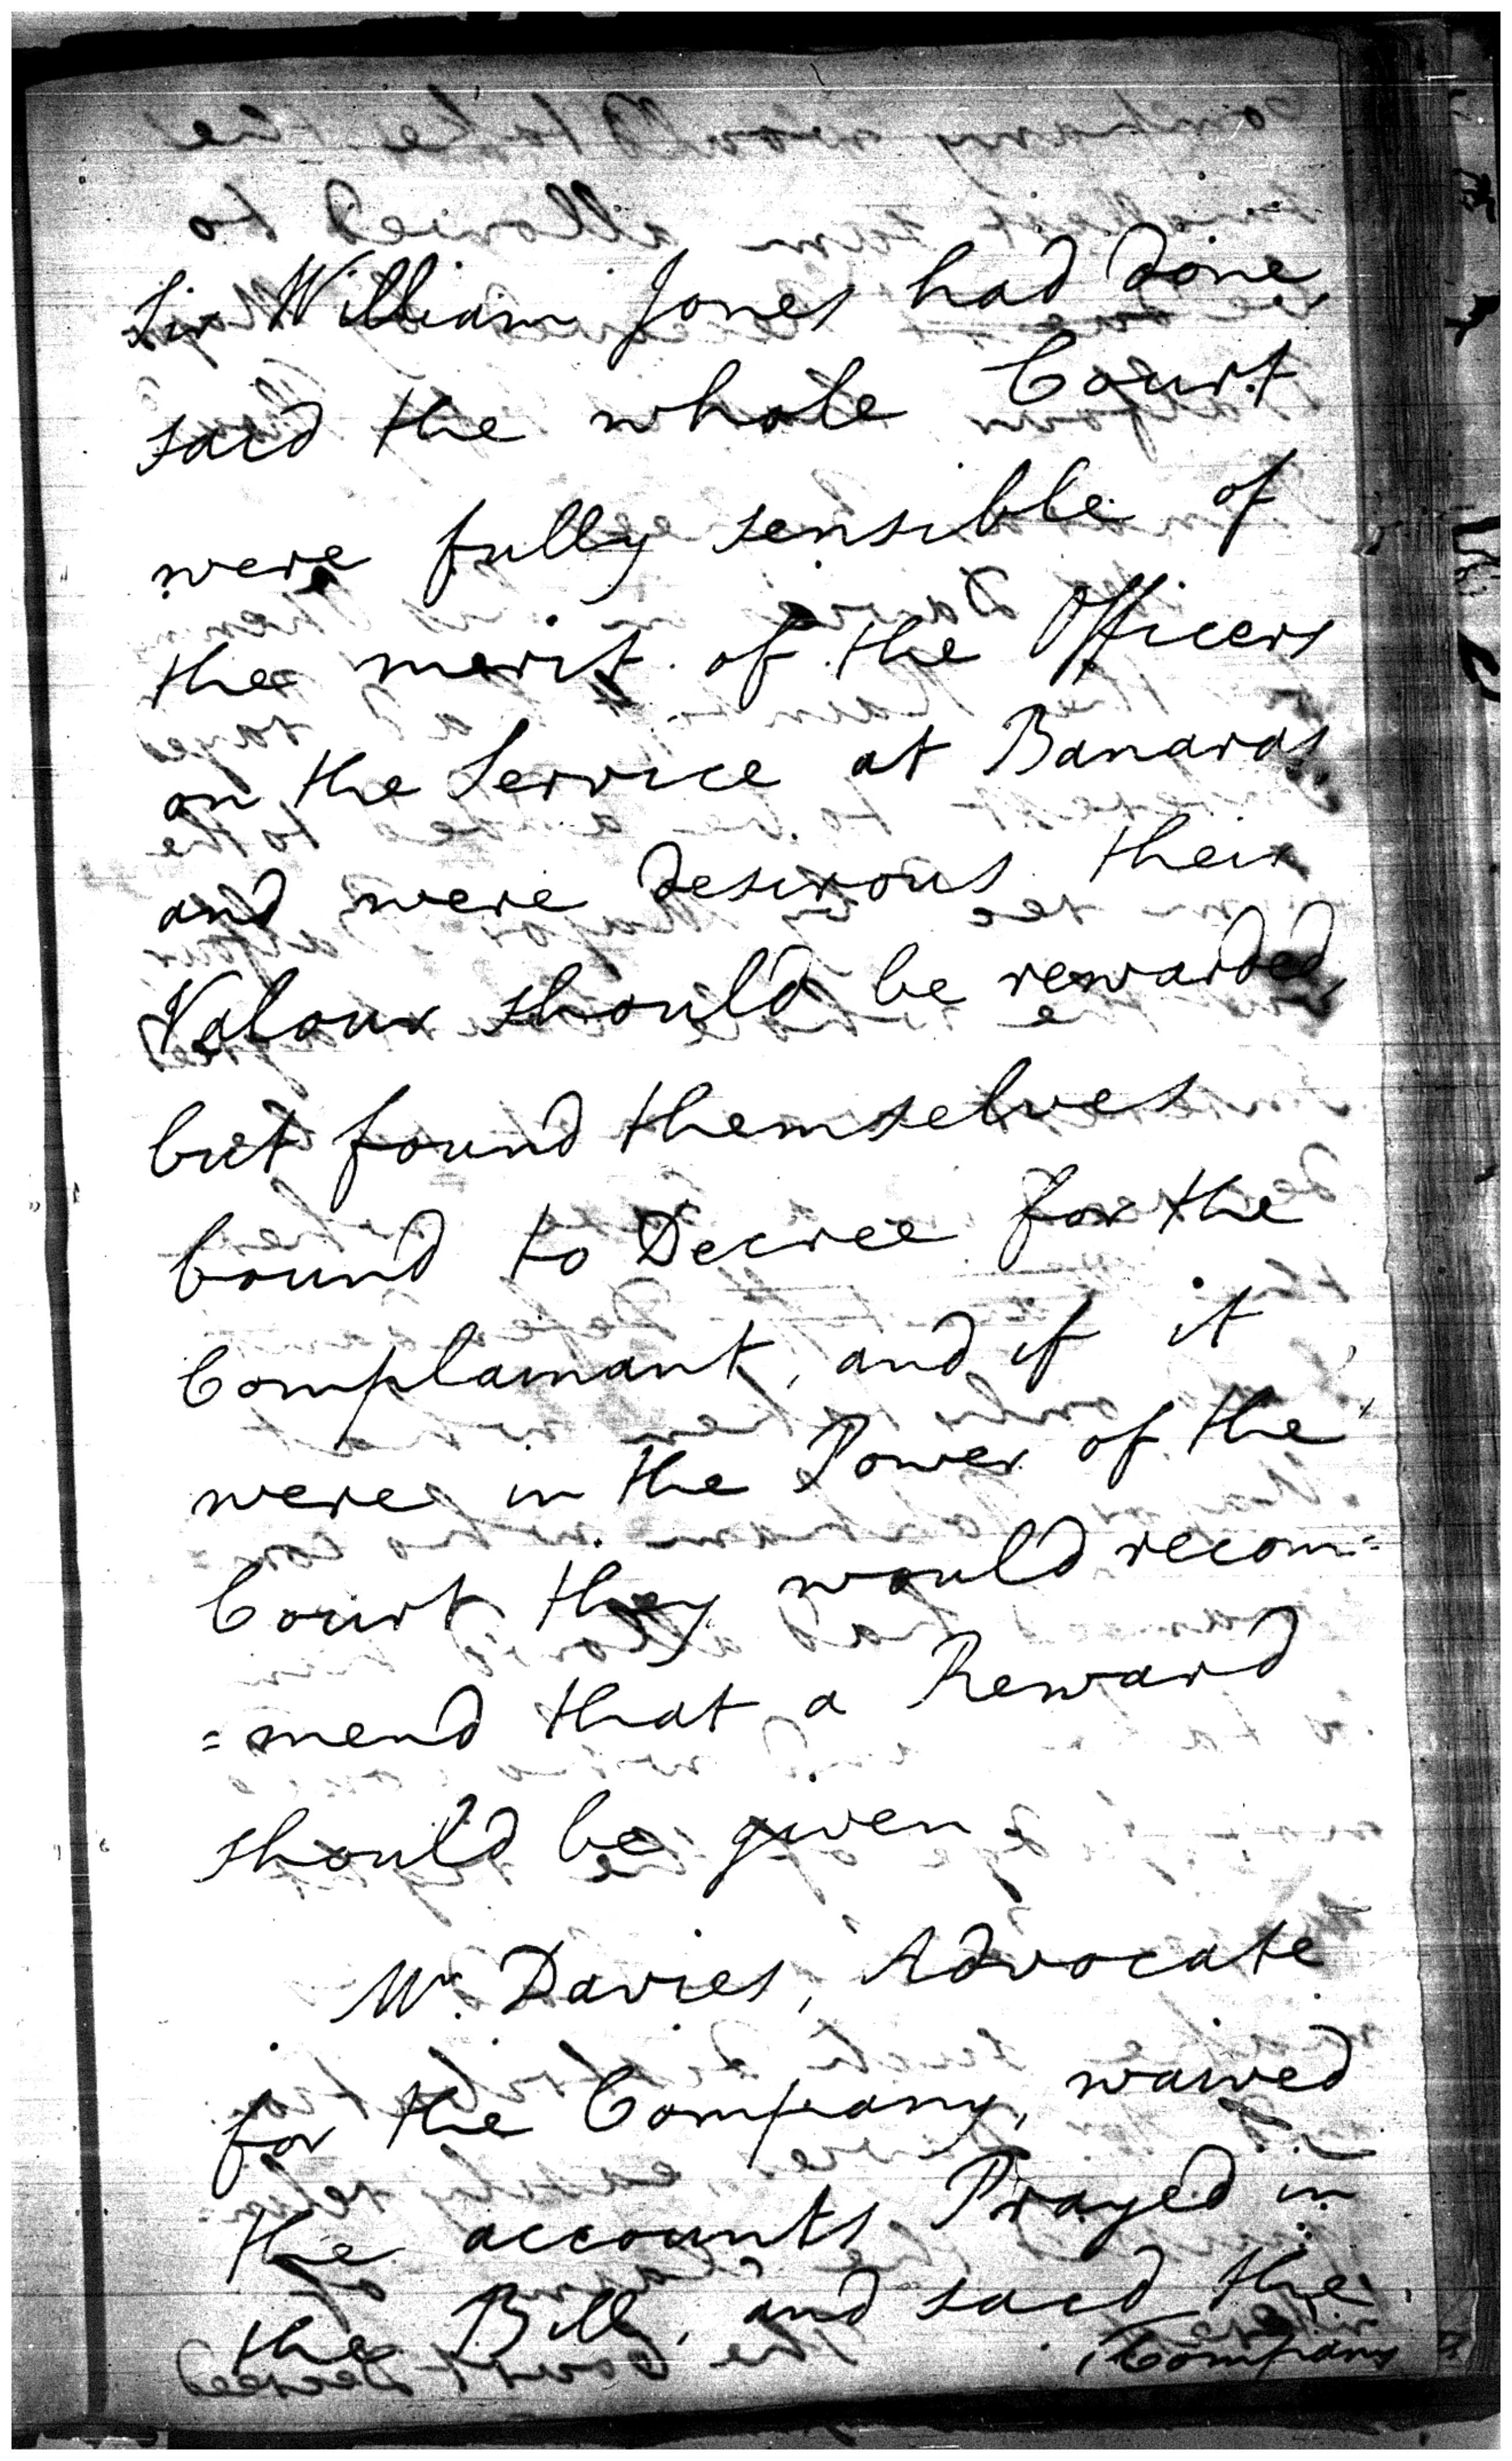 Sir William Jones had done,
said the whole Court
were fully sensible of
the merit of the Officers
on the Service at Banaras,
and were desirous their
Valour should be rewarded,
but found themselves
bound to Decree for the
Complainant, and if it
were in the Power of the
Court they would recom=
=mend that a Reward
should be given.
Mr. Davies, Advocate
for the Company, waived
the accounts Prayed in
the Bill, and said the
Company